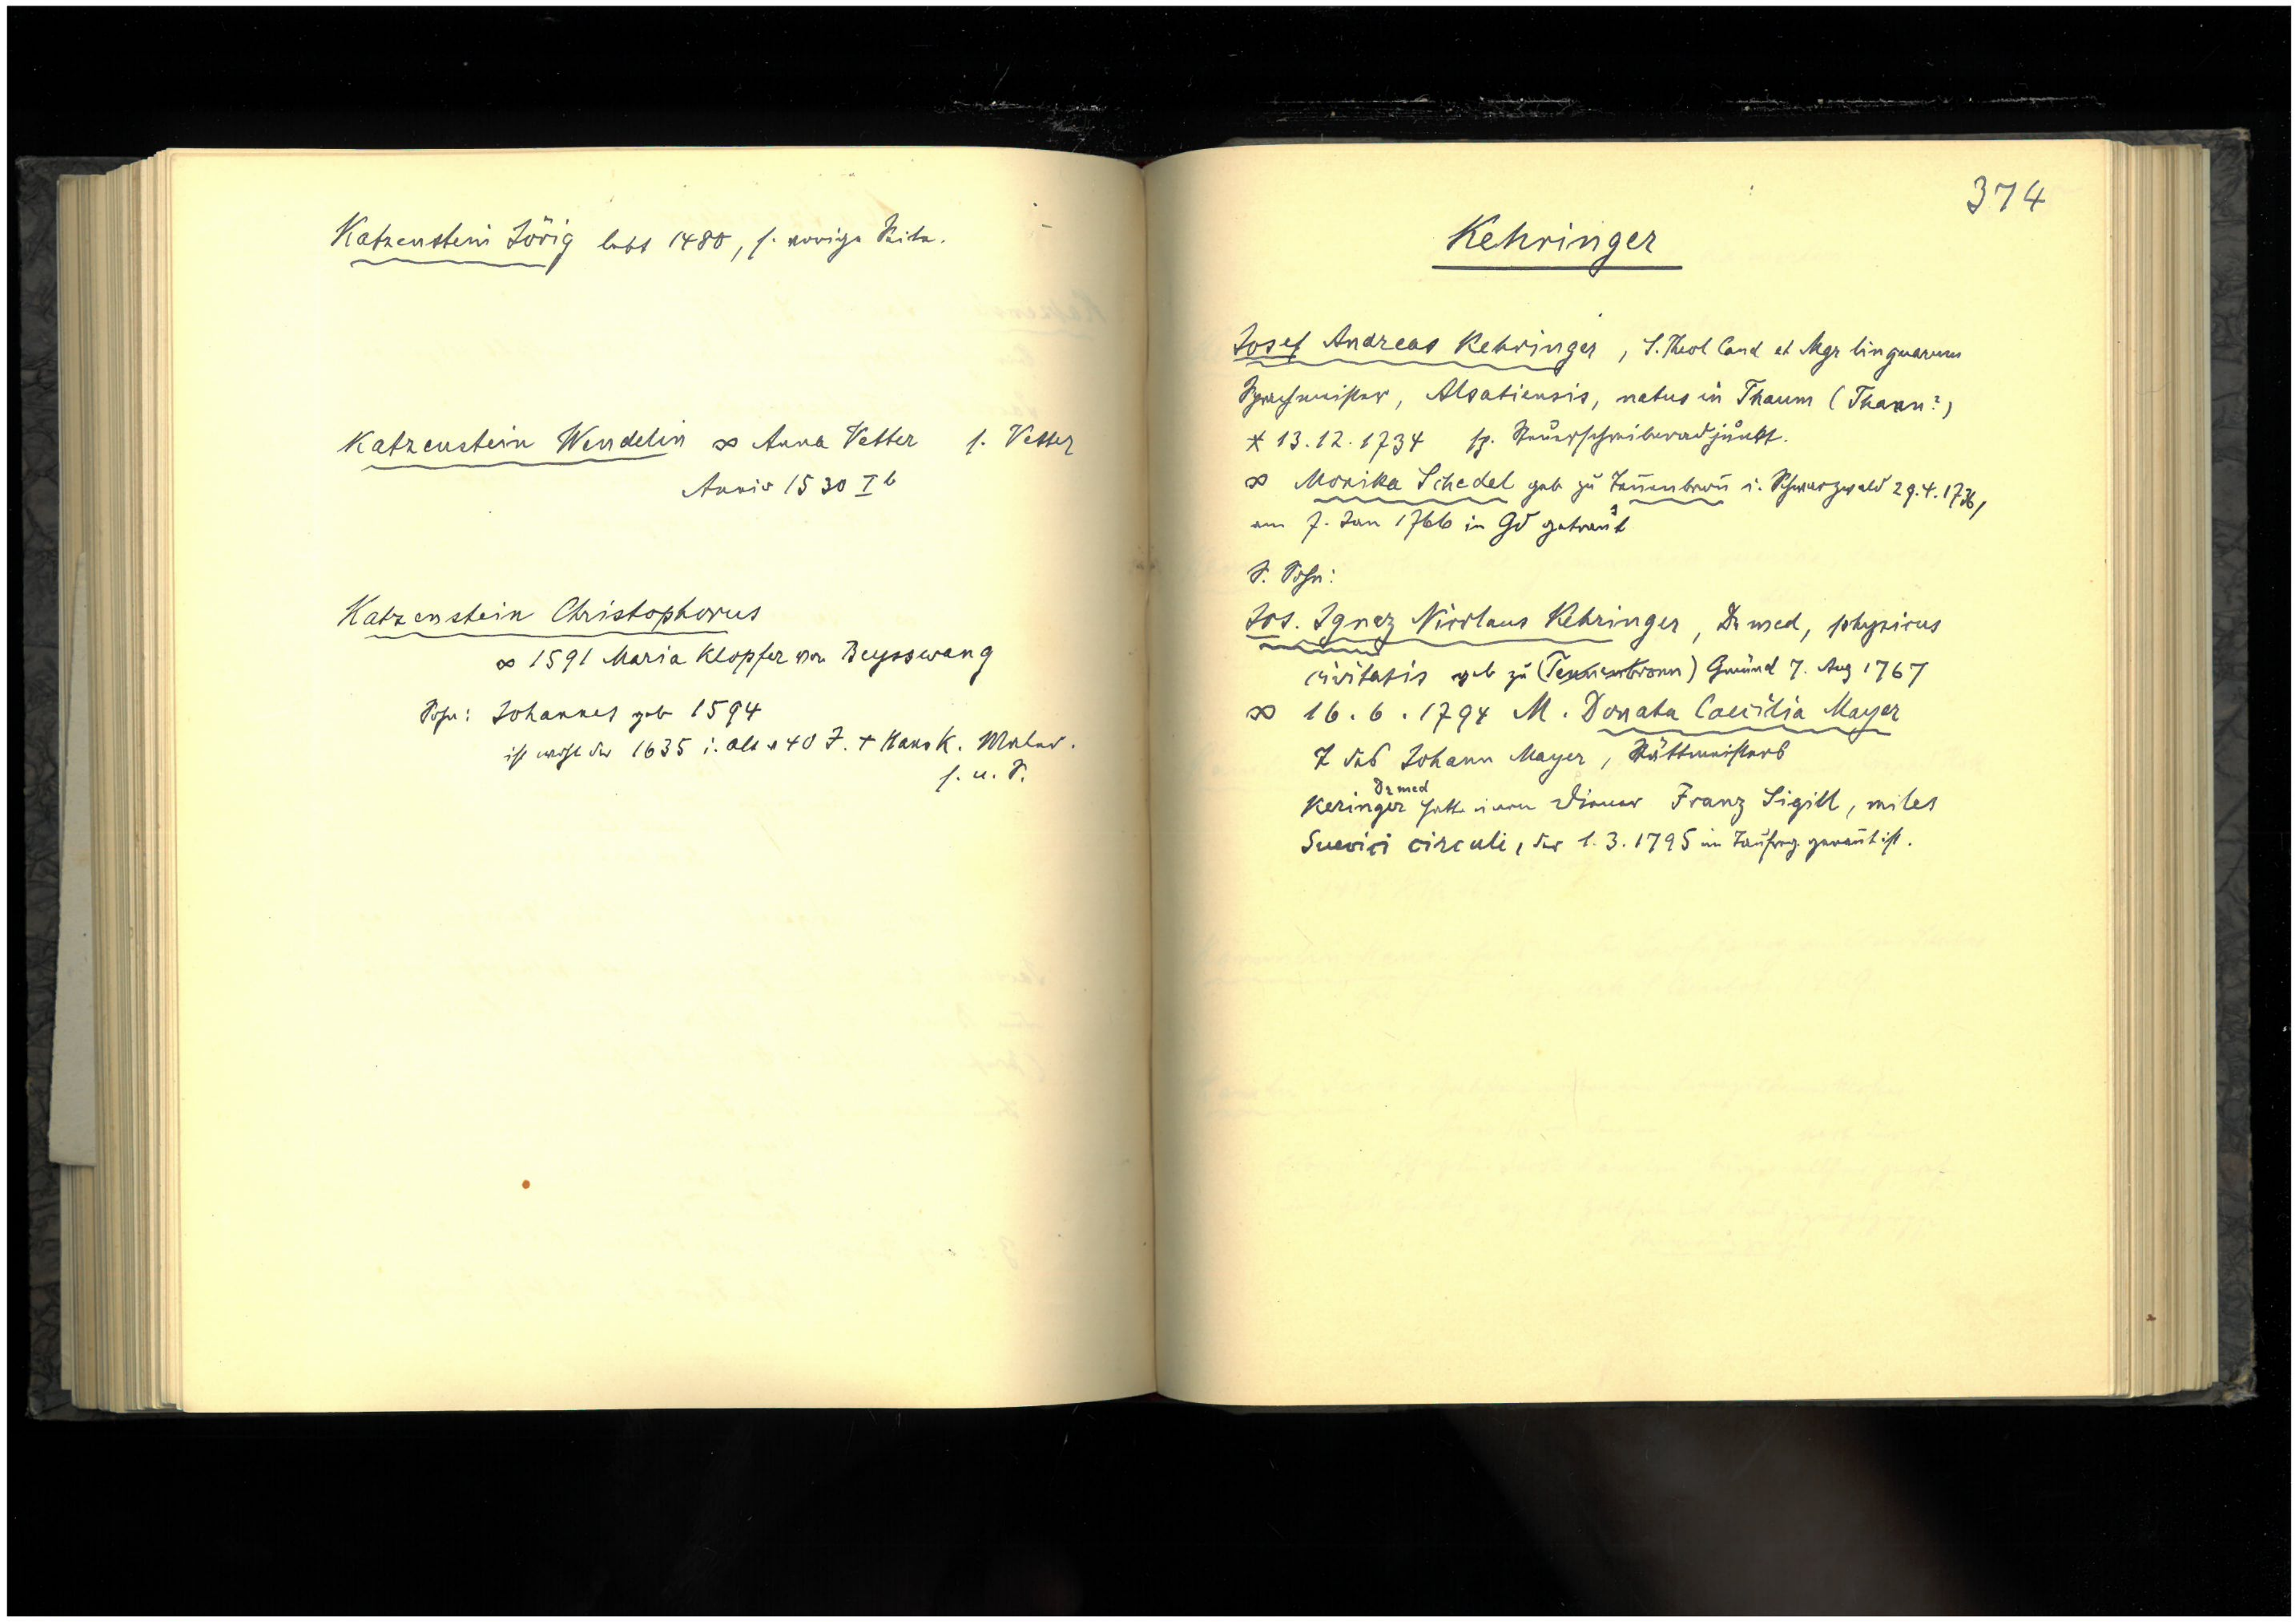 Katzenstein Jörig lebt 1480, s. vorige Seite.
Katzenstein Wendelin ∞ Anna Vetter s. Vetter
Anniv 1530 I b
Katzenstein Christophorus
∞ 1591 Maria Klopfer von Beysswang
Sohn: Johannes geb 1594
ist wohl der 1635 i. Alt v 40 J. + Hans K. Maler.
s. u. S.
374
Kehringer
Josef Andreas Kehringer, S. Theol Cand et Mgr linguarum
Sprachmeister, Alsatiensis, natus in Thaum (Thann?)
* 13.12.1734 sp. Steuerschreiberadjunkt.
∞ Monika Schedel geb zu Tennenbron̄ i. Schwarzwald 29.4.1736,
am 7. Jan 1766 in Gd getraut
S. Sohn:
Jos. Ignaz Nicolaus Kehringer, Dr med, physicus
civitatis geb zu (Tennenbronn) Gmünd 7. Aug 1767
∞ 16.6.1794 M. Donata Caecilia Mayer
T des Johann Mayer, Stättmeisters
Keringer Dr med hatte einen Diener Franz Sigill, miles
Suevici circuli, der 1.3.1795 im Taufreg. genan̄t ist.